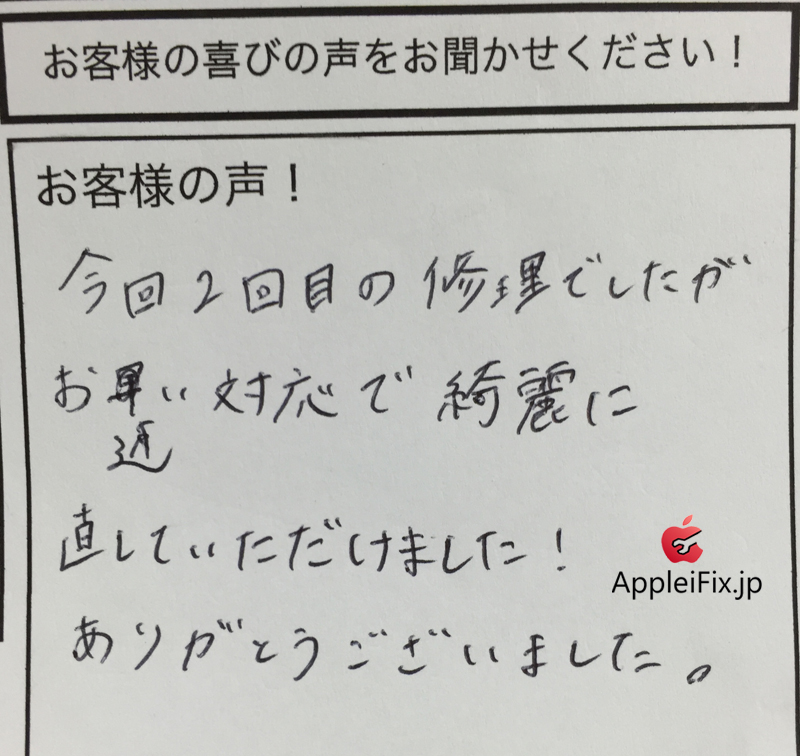 お客様の喜びの声をお聞かせください！
お客様の声！
今回2回目の修理でしたが
お早い対応で綺麗に
直していただけました！
AppleiFix.jp
ありがとうございました。